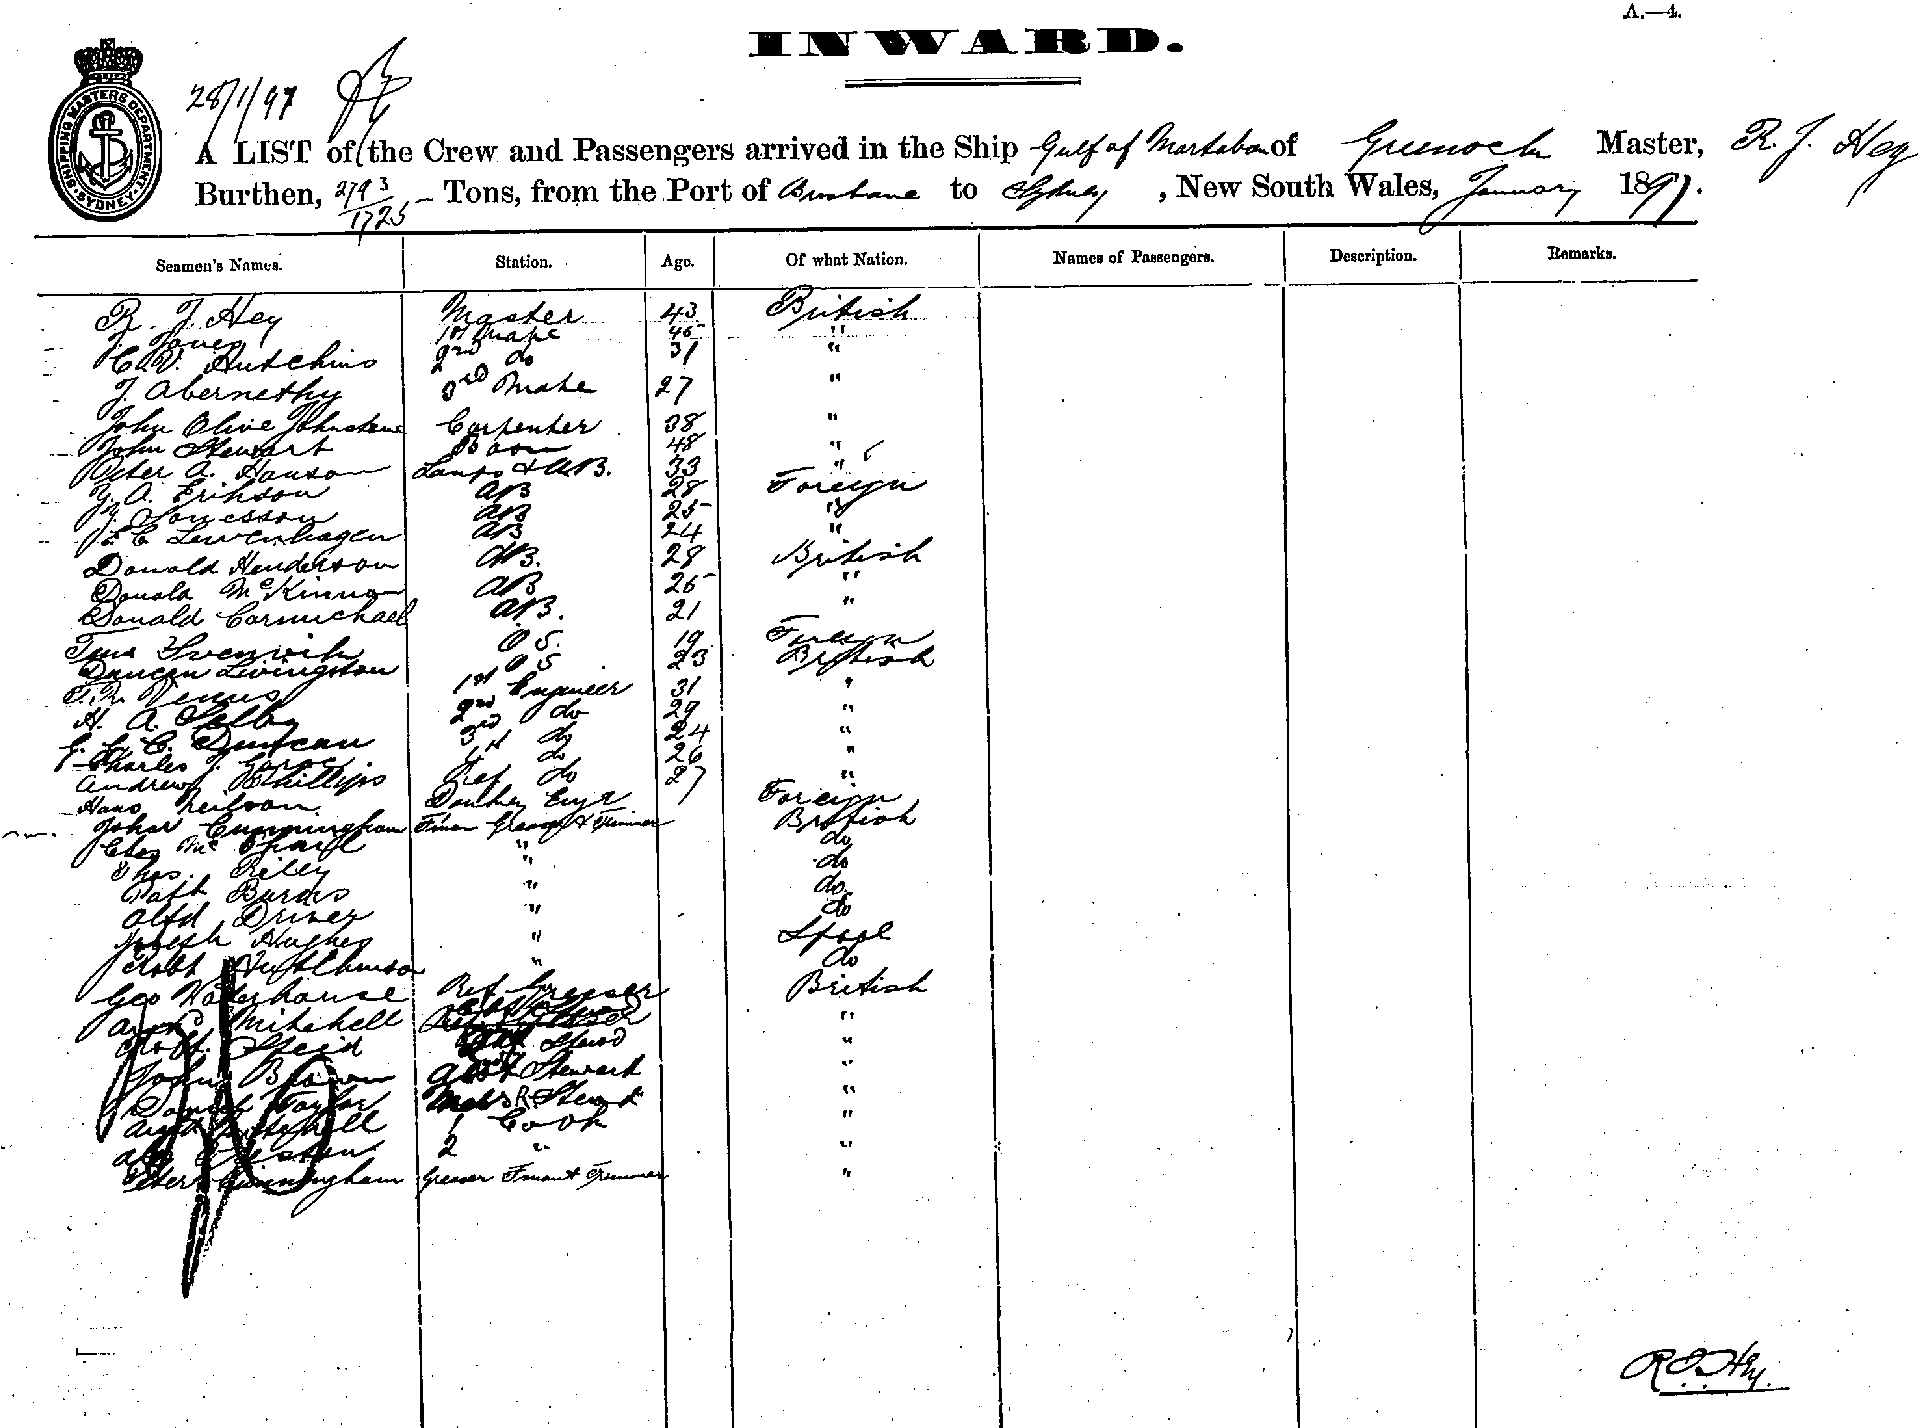 A.—4.
INWARD.
SHIPPING MASTERS DEPARTMENT SYDNEY
28/1/97
A LIST of the Crew and Passengers arrived in the Ship Gulf of Martaban of Greenock Master, R. J. Hey
Burthen, 2793/1725 Tons, from the Port of Brisbane to Sydney, New South Wales, January 1897.
Seamen's Names. Station. Age. Of what Nation. Names of Passengers. Description. Remarks.
R. J. Hey Master 43 British
Jones 1st Mate 45 "
C. V. Hutchins 2nd do 31 "
J Abernethy 3rd Mate 27 "
John Olive Johnstone Carpenter 38 "
John Stewart Bosn 48 "
Peter A. Hanson Lamps & AB. 33 "
A. Erikson AB 28 Foreign
AB 25 "
C Lewenhagen AB 24 "
Donald Henderson AB. 28 British
Donald McKinnon AB 25 "
Donald Carmichael AB. 21 "
OS. 19 Foreign
Duncan Livingston OS 23 British
Venus 1st Engineer 31 "
H. A. Selby 2nd do 29 "
C. Duncan 3rd do 24 "
Charles J. 4th do 26 "
Andrew Phillips Ref do 27 "
Hans Neilson Donkey Engr Foreign
John Cunningham Fireman Greaser & Trimmer British
Chas Mc " do
Thos. Riley do
Patk Burns " do
Alfd Driver " do
Joseph Hughes " Lpool
Robt Hutchinson " do
Geo Waterhouse Ref Greaser British
Archd Mitchell "
Robt. Reid Stewd "
John Brown Asst Stewart "
Daniel Taylor Mess R. Steward "
Mitchell 1 Cook "
2 " "
Peter Cunningham Greaser Fman & Trimmer "
R. J. Hey.